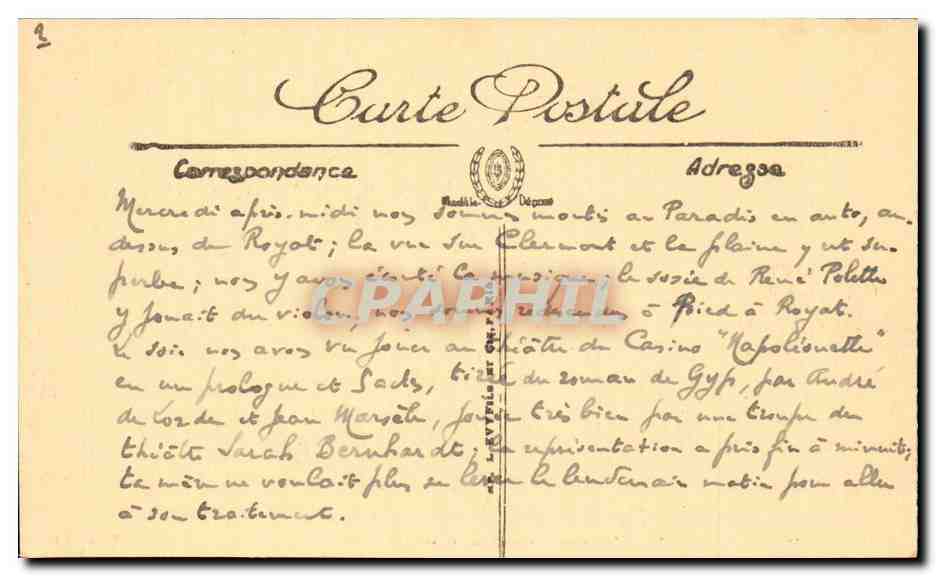 2
Carte Postale
Correspondance
Adresse
Modèle Déposé
Mercredi après-midi nos sommes montés au Paradis en auto, au-
dessus de Royat ; la vue sur Clermont et la plaine y est su-
perbe ; nos y avons écouté la musique ; le sosie de René
y jouait du violon, nos sommes redescendus à Pied à Royat.
Le soir nos avons vu jouer au théâtre du Casino "Napoléonette"
en un prologue et 5 actes, tirée du roman de Gyp, par André
de Lorde et Jean Marsèle, jouée très bien par une troupe du
théâtre Sarah Bernhardt ; la représentation a pris fin à minuit ;
ta mère ne voulait plus se lever le lendemain matin pour aller
à son traitement.
LEVY FILS ET CIE, PARIS
CPAPHIL